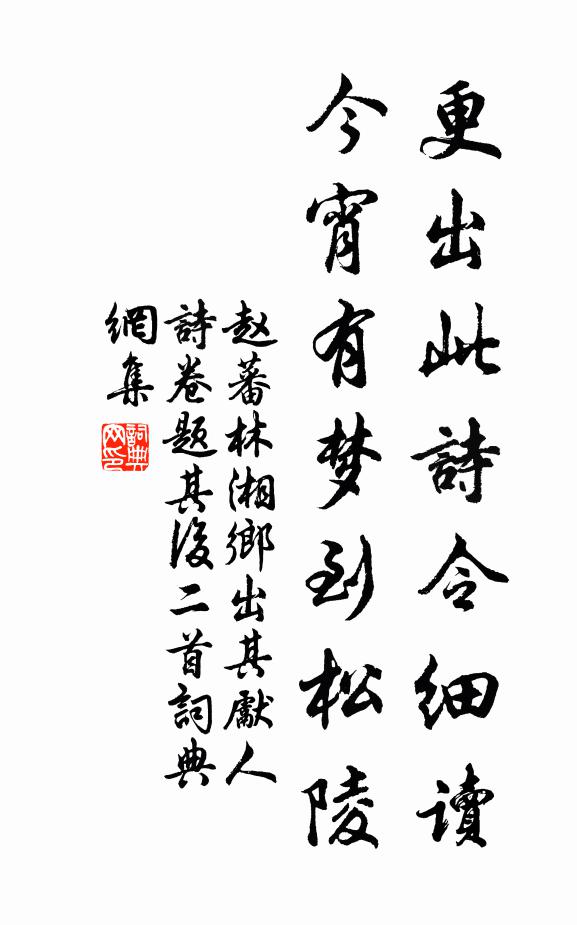 更出此詩令細讀
今宵有梦到松陵
赵蕃林湘鄉出其獻人
詩卷題其後二首詞典
網集
詞典
网印